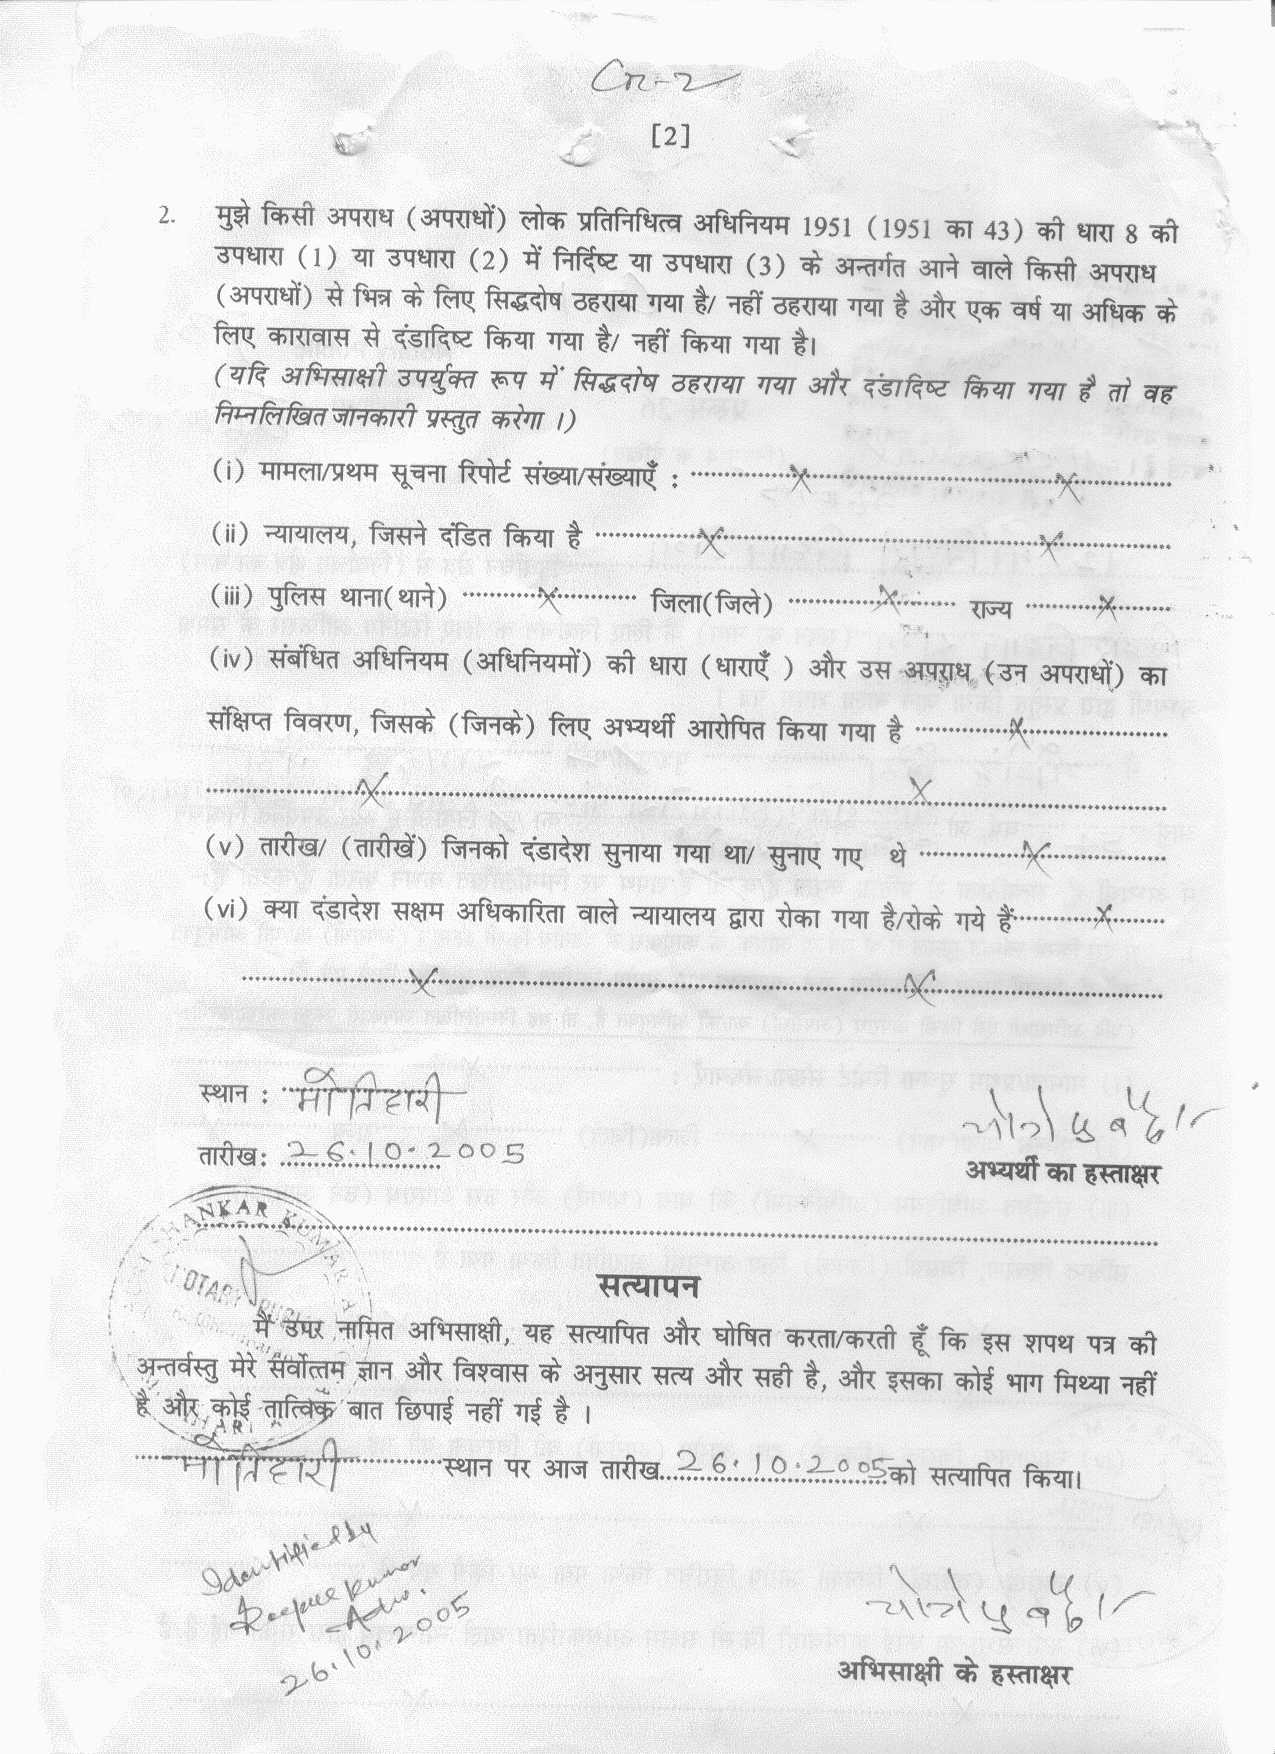 Cr-2
[2]
2. मुझे किसी अपराध (अपराधों) लोक प्रतिनिधित्व अधिनियम 1951 (1951 का 43) की धारा 8 की
उपधारा (1) या उपधारा (2) में निर्दिष्ट या उपधारा (3) के अन्तर्गत आने वाले किसी अपराध
(अपराधों) से भिन्न के लिए सिद्धदोष ठहराया गया है/ नहीं ठहराया गया है और एक वर्ष या अधिक के
लिए कारावास से दंडादिष्ट किया गया है/ नहीं किया गया है।
(यदि अभिसाक्षी उपर्युक्त रूप में सिद्धदोष ठहराया गया और दंडादिष्ट किया गया है तो वह
निम्नलिखित जानकारी प्रस्तुत करेगा ।)
(i) मामला/प्रथम सूचना रिपोर्ट संख्या/संख्याएँ : ........ X ........ X ........
(ii) न्यायालय, जिसने दंडित किया है ........ X ........ X ........
(iii) पुलिस थाना(थाने) ........ X ........ जिला(जिले) ........ X ........ राज्य ........ X ........
(iv) संबंधित अधिनियम (अधिनियमों) की धारा (धाराएँ ) और उस अपराध (उन अपराधों) का
संक्षिप्त विवरण, जिसके (जिनके) लिए अभ्यर्थी आरोपित किया गया है ........ X ........
........ X ........ X ........
(v) तारीख/ (तारीखें) जिनको दंडादेश सुनाया गया था/ सुनाए गए थे ........ X ........
(vi) क्या दंडादेश सक्षम अधिकारिता वाले न्यायालय द्वारा रोका गया है/रोके गये हैं ........ X ........
........ X ........ X ........
स्थान : मोतिहारी
तारीख: 26.10.2005
अभ्यर्थी का हस्ताक्षर
SHANKAR KUMAR
NOTARY PUBLIC
सत्यापन
मैं उपर नामित अभिसाक्षी, यह सत्यापित और घोषित करता/करती हूँ कि इस शपथ पत्र की
अन्तर्वस्तु मेरे सर्वोत्तम ज्ञान और विश्वास के अनुसार सत्य और सही है, और इसका कोई भाग मिथ्या नहीं
है और कोई तात्विक बात छिपाई नहीं गई है ।
मोतिहारी स्थान पर आज तारीख 26.10.2005 को सत्यापित किया।
Identified by
Kumar
Adv.
26.10.2005
अभिसाक्षी के हस्ताक्षर